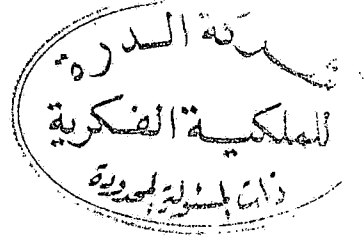 شركة الدرة
للملكية الفكرية
ذات المسئولية المحدودة